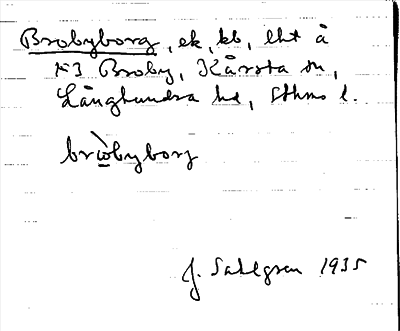 Brobyborg, ek, kb, lht å
K3 Broby, Kårsta sn,
Långhundra hd, Sthms l.
bròbyborg
J. Sahlgren 1935